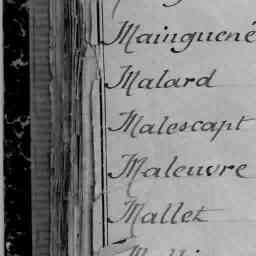 Mainguené
Malard
Malescapt
Maleuvre
Mallet